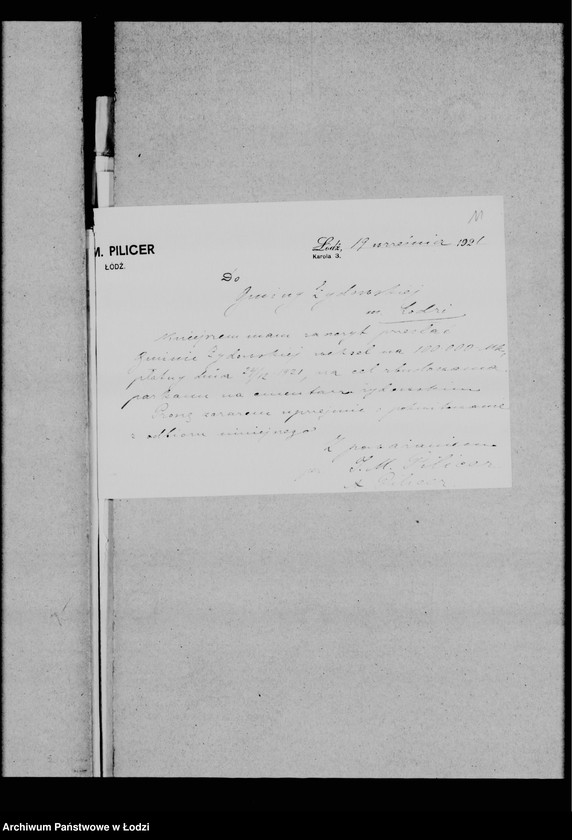 M. PILICER
ŁÓDŹ.
Łódź, 19 września 1921
Karola 3.
Do
Gminy Żydowskiej
w Łodzi
Niniejszem mam zaszczyt przesłać
Gminie Żydowskiej weksel na 100 000 Mk,
płatny dnia 1921, na cel zbudowania
parkanu na cmentarzu żydowskim
Proszę zarazem uprzejmie o pokwitowanie
z odbioru niniejszego
Z poważaniem
M. Pilicer
Pilicer
Archiwum Państwowe w Łodzi